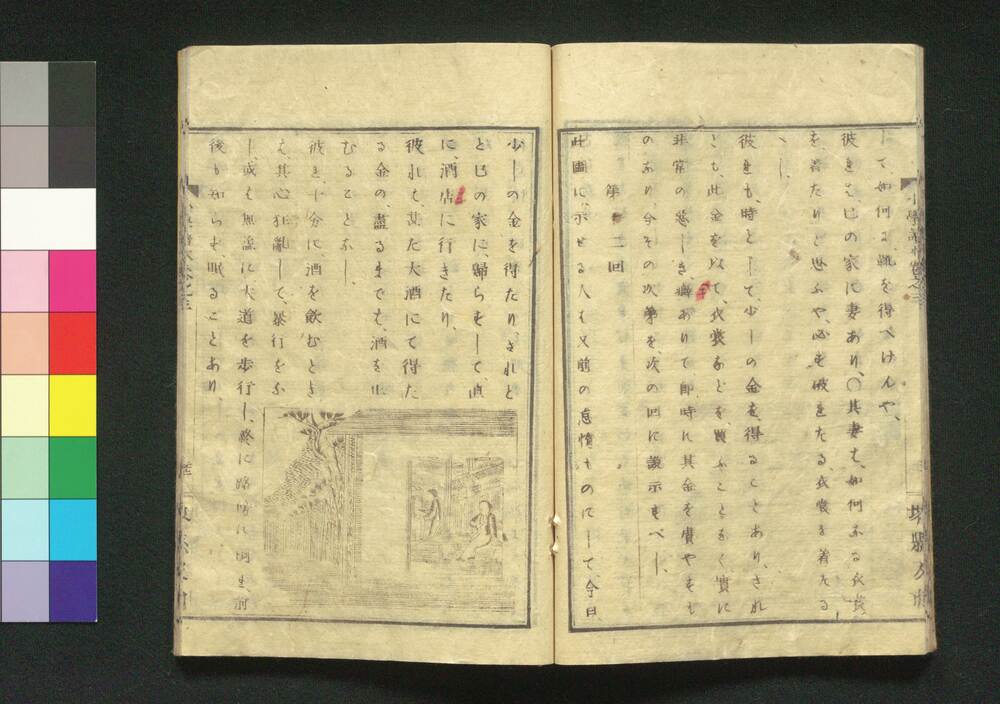 して、如何なる職を得べけんや、
彼れは、己の家に妻あり、〇其妻も、如何なる衣裳
を、着たりと思ふや、必ず破れたる、衣裳を着たる
べし、
彼れも、時としては、少しの金を、得ることあり、され
ども、此金を以て、衣裳などを、買ふことなく、實に
非常の悪しき、癖ありて即時に其金を費やせも
のあり、今その次第を、次の回に説示すべし、
第二回
此圖に、示せる人も又前の怠惰ものにして、今日
少しの金を得たり、されど
と己の家に、歸らずして直
に、酒店に行きたり、
彼れも、甚た大酒にて得た
る金の、盡るまでも、酒を止
むることなし、
彼れ十分に、酒を飲むとき
は、其心狂亂して、暴行をな
し、或も無益に大道を歩行し、終に路傍に倒れ、前
後も知らず、眠ることあり、